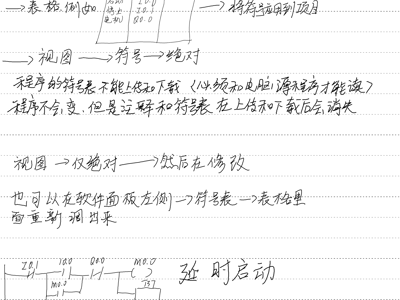 →表格,例如
停止 I0.1
电机 Q0.0
→将符号应用到项目
→视图→符号→绝对
程序的符号表不能上传和下载(必须和电脑源程序才能读)
程序不会变,但是注解和符号表在上传和下载后会消失
视图→仅绝对→然后在修改
也可以在软件面板左侧→符号表→表格里
面重新调出来
I0.1 I0.0 Q0.0 M0.0
M0.0 T37
延时启动